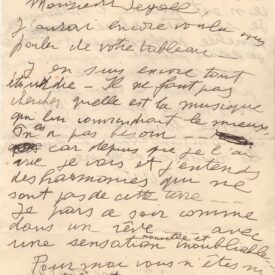 Monsieur
J'aurai encore voulu vous
parler de votre tableau
J'en suis encore tout
Il ne faut pas
chercher quelle est la musique
qui lui conviendrait le mieux
On n'a pas besoin
car depuis que je l'ai
vue je vois et j'entends
des harmonies qui ne
sont pas de cette terre
Je pars ce soir comme
dans un rêve avec
une sensation nouvelle et inoubliable
Pourquoi vous n'êtes ni